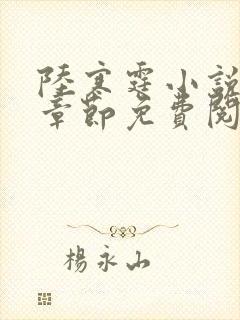 陸寒霆小說
章節免費閱
楊永山